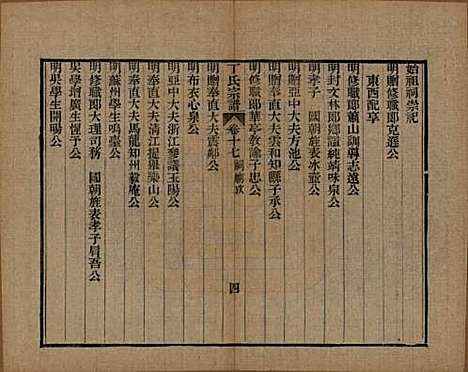 始祖祠崇祀
明贈修職郎克遜公
東西配享
明修職郎蕭山訓導志遠公
明封文林郎鄉諡純靖味泉公
明孝子 國朝旌表冰壺公
明贈亞中大夫方池公
明贈奉直大夫雲和知縣子承公
明修職郎華亭教諭子忠公
丁氏宗譜 卷十七 祠廟攷 四
明贈奉直大夫震鄰公
明布衣心泉公
明亞中大夫浙江參議玉陽公
明奉直大夫清江提舉樂山公
明奉直大夫馬龍知州毅庵公
明蘇州學生鳴臺公
明修職郎大理司務 國朝旌表孝子眉吾公
吳學增廣生惺予公
明吳學生開暘公